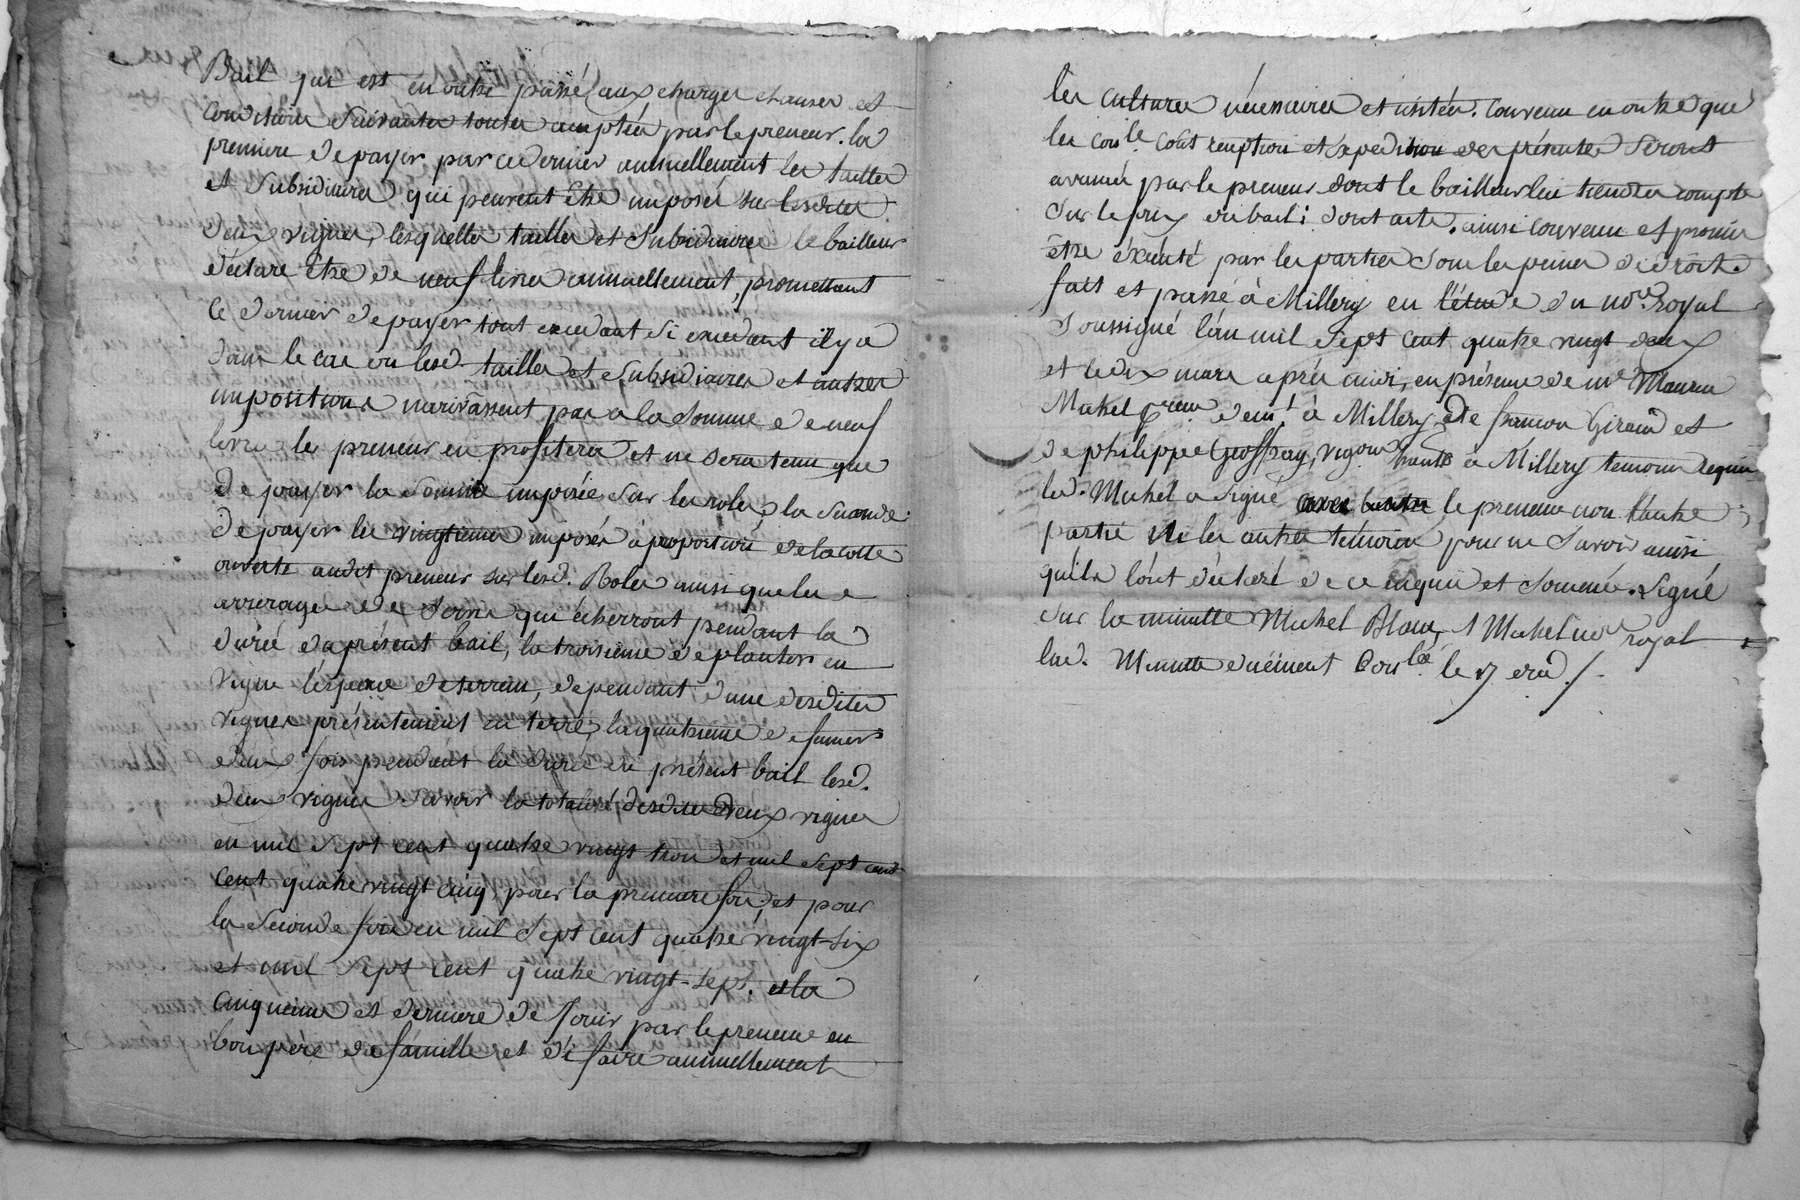 Bail qui est en outre passé aux charges clauses et
conditions suivantes toutes acceptées par le preneur. la
premiere de payer par ce dernier annuellement les tailles
et subsidiaires qui peuvent être imposés sur lesdites
deux vignes, lesquelles tailles et subsidiaires le bailleur
déclare être de neuf livres annuellement, promettant
ce dernier de payer tout excedant si excedant il y a
dans le cas ou lesd. tailles et subsidiaires et autres
impositions n'arivassent pas a la somme de neuf
livres le preneur en profitera et ne sera tenu que
de payer la somme imposée sur les roles, la seconde
de payer les vingtiemes imposés à proportion de la cotte
ouverte audit preneur sur lesd. Roles ainsi que les
arrerages de servis qui écherront pendant la
durée du présent bail, la troisieme de planter en
vigne l'espace de terrein, dependant d'une desdites
vignes présentement en terre, la quatrieme de fumer
deux fois pendant la durée du présent bail lesd.
deux vignes savoir la totalité desdites deux vignes
en mil sept cent quatre vingt trois et mil sept cent
cent quatre vingt cinq, pour la premiere fois, et pour
la seconde fois en mil sept cent quatre vingt-six
et mil sept cent quatre vingt-sept. et la
cinquieme et derniere de jouir par le preneur en
bon pere de famille et d'i faire annuellement
les cultures nécessaires et usitées. Convenu en outre que
les con.le coût reception et expedition des présentes seront
avancés par le preneur dont le bailleur lui tiendra compte
sur le prix du bail: dont acte. ainsi convenu et promis
être éxécuté par les parties sous les peines de droit.
fait et passé à Millery en l'étude du no.re royal
soussigné l'an mil sept cent quatre vingt deux
et le dix mars après midi, en présence de m.e Maurice
Michel demt à Millery, de françois Giraud et
de philippe Geoffray, vigon habts à Millery temoins requis
led. Michel a signé le preneur non l'autre
partie ni les autres témoins pour ne savoir ainsi
qu'ils l'ont déclaré de ce enquis et sommés. Signé
sur la minutte Michel Blanc, Michel no.re royal
lad. Minutte duement con.lée le 17 dud./.